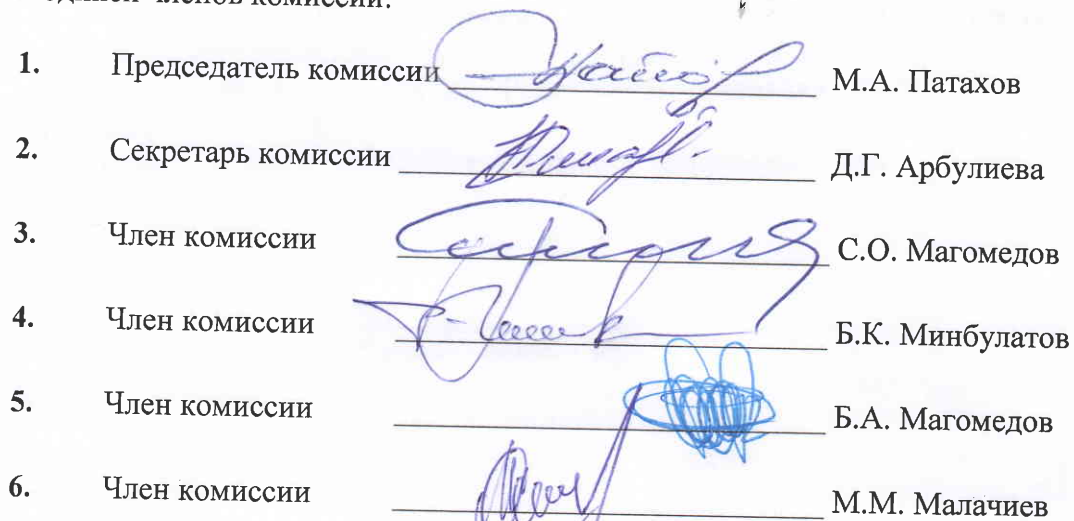 членов комиссии:
1. Председатель комиссии М.А. Патахов
2. Секретарь комиссии Д.Г. Арбулиева
3. Член комиссии С.О. Магомедов
4. Член комиссии Б.К. Минбулатов
5. Член комиссии Б.А. Магомедов
6. Член комиссии М.М. Малачиев